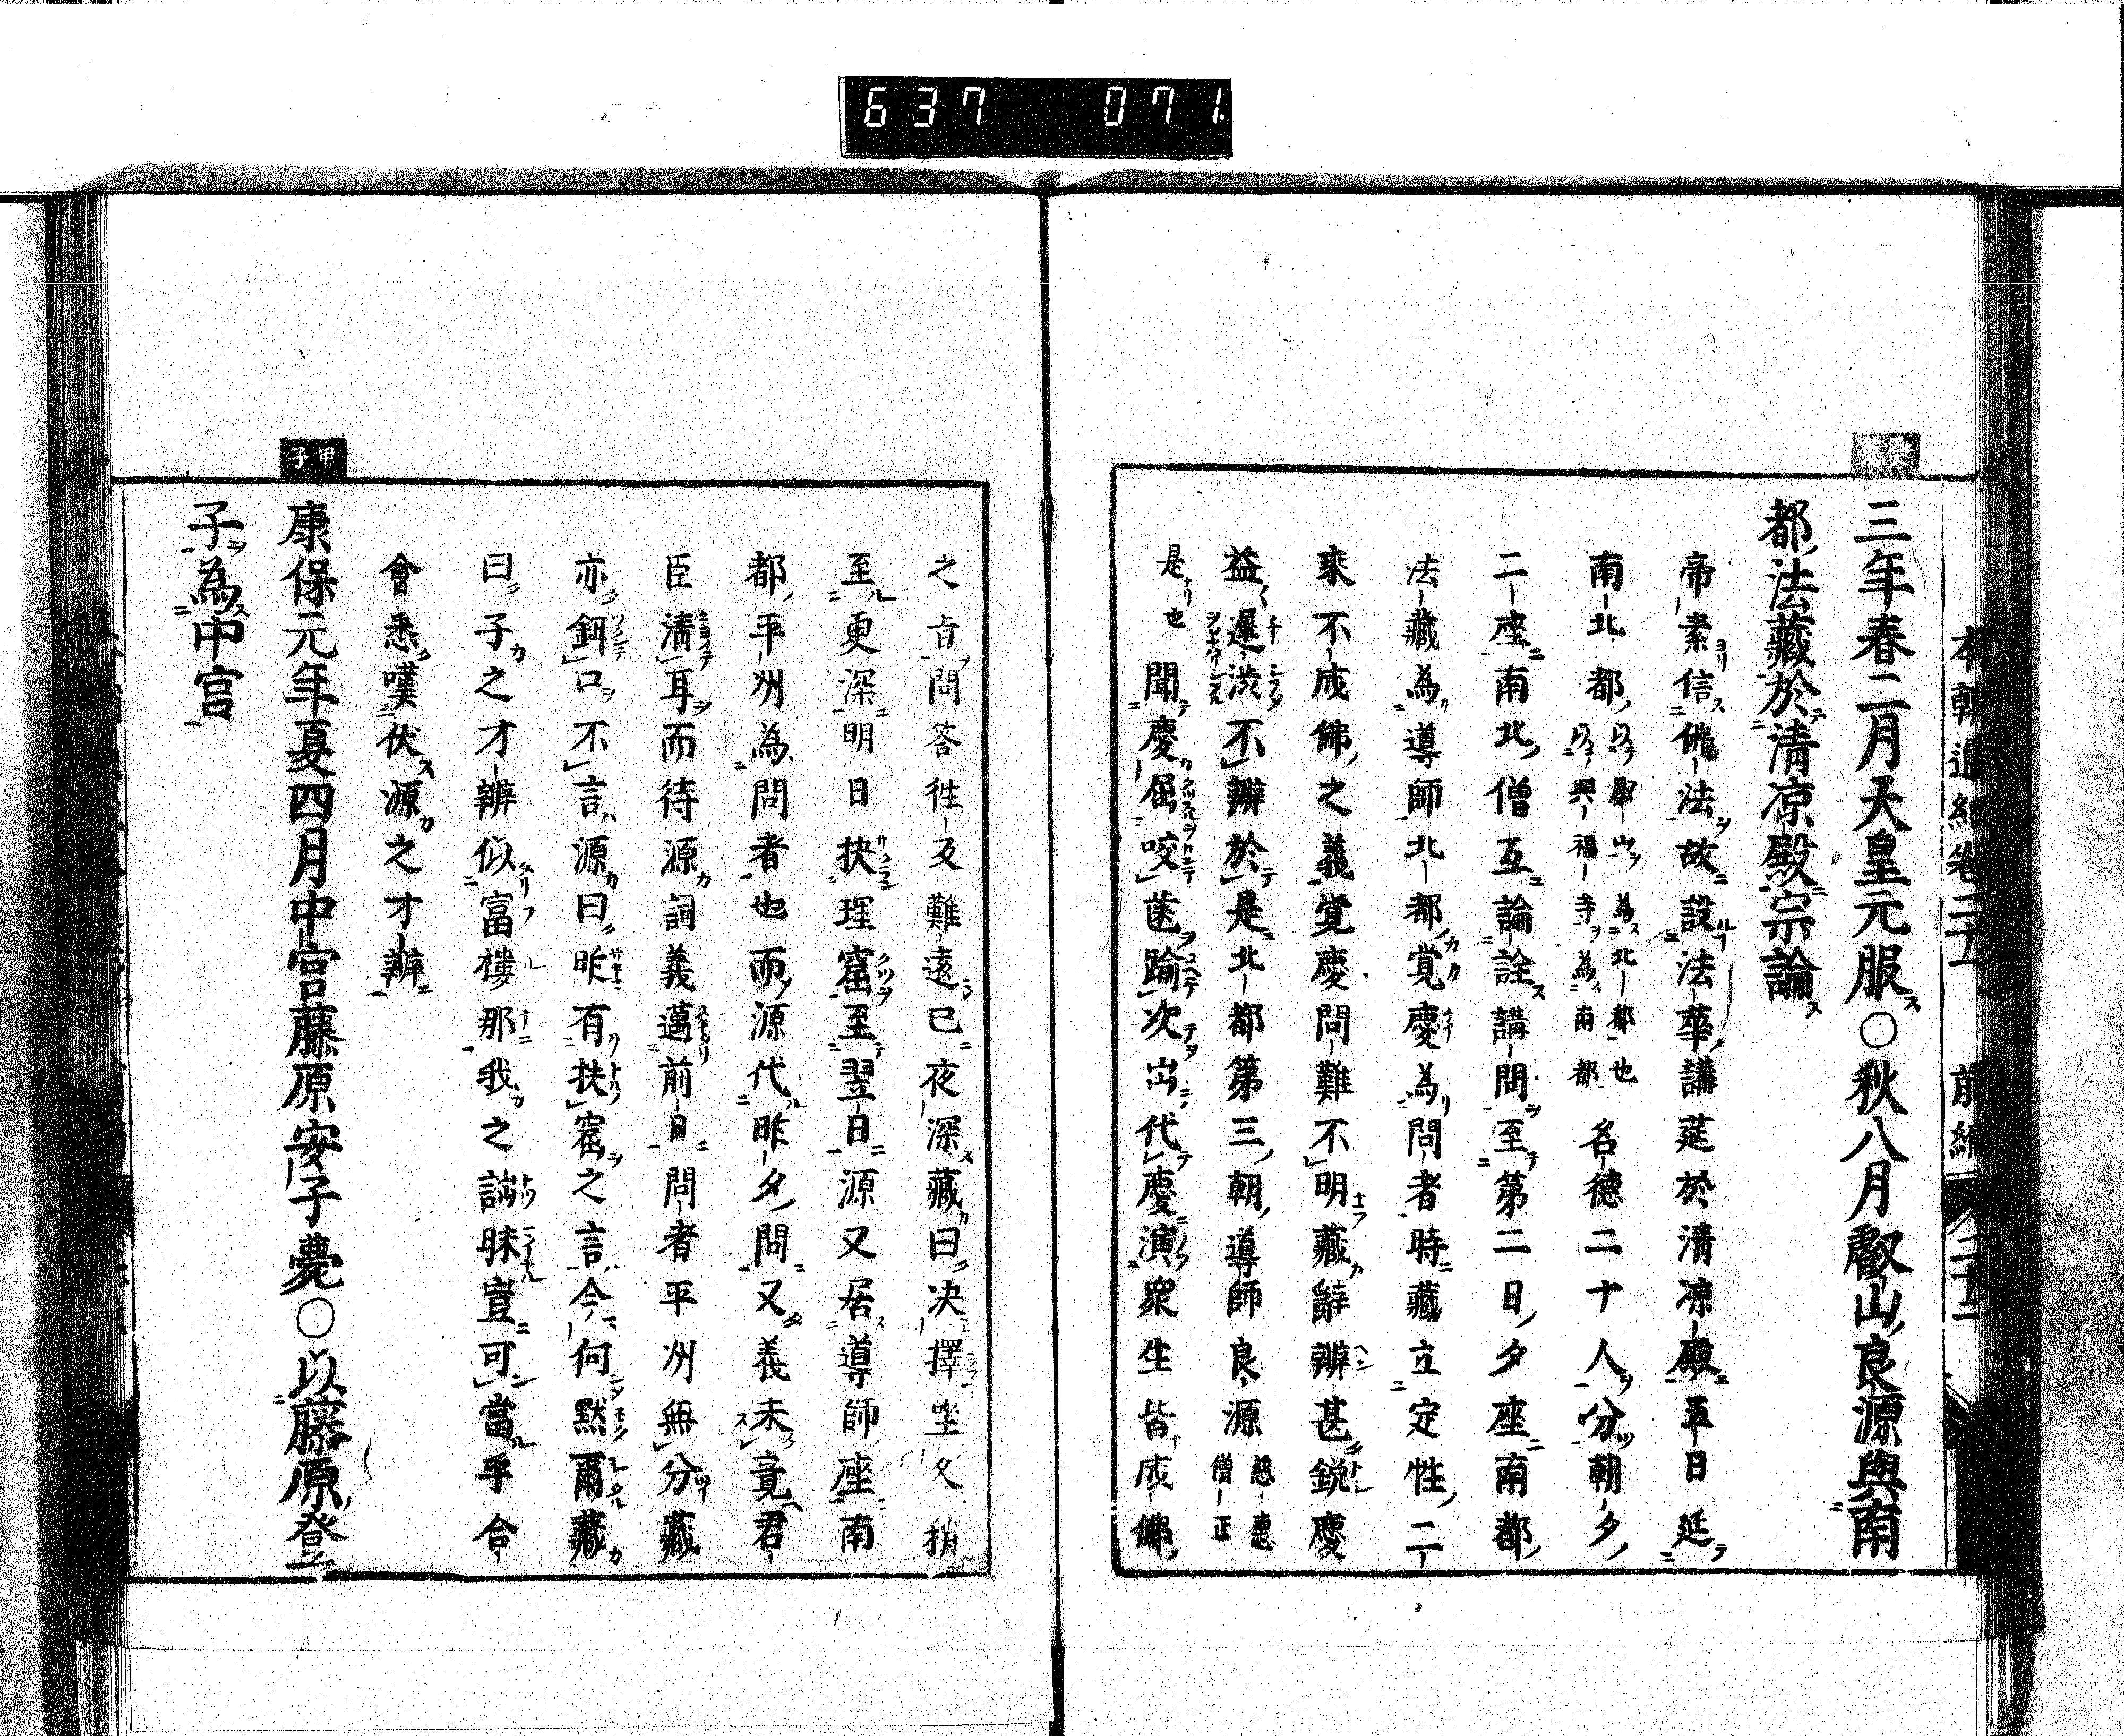 637 071
本朝通紀卷二十 前編 二十二
癸亥
三年春二月天皇元服〇秋八月叡山良源與南
都法藏於清凉殿宗論
帝素信佛法故設法華講莚於清凉殿五日延
南北都以叡山為北都也以興福寺為南都名德二十人分朝夕
二座南北僧互論詮講問至第二日夕座南都
法藏為導師北都覚慶為問者時藏立定性二
乘不成佛之義覚慶問難不明藏辭辨甚鋭慶
益遲渋不辨於是北都第三朝導師良源慈恵僧正
是也聞慶屈咬齒踰次出代慶演衆生皆成佛
之旨問答徃反難遠已夜深藏曰决擇坐久稍
至更深明日抉理窟至翌日源又居導師座南
都平州為問者也而源代昨夕問又義未竟君
臣淸耳而待源詞義邁前日問者平州無分藏
亦鉺口不言源曰昨有抉窟之言今何默爾藏
曰子之才辨似富樓那我之訥昧豈可當乎合
會悉嘆伏源之才辦
甲子
康保元年夏四月中宮藤原安子薨〇以藤原登
子為中宮